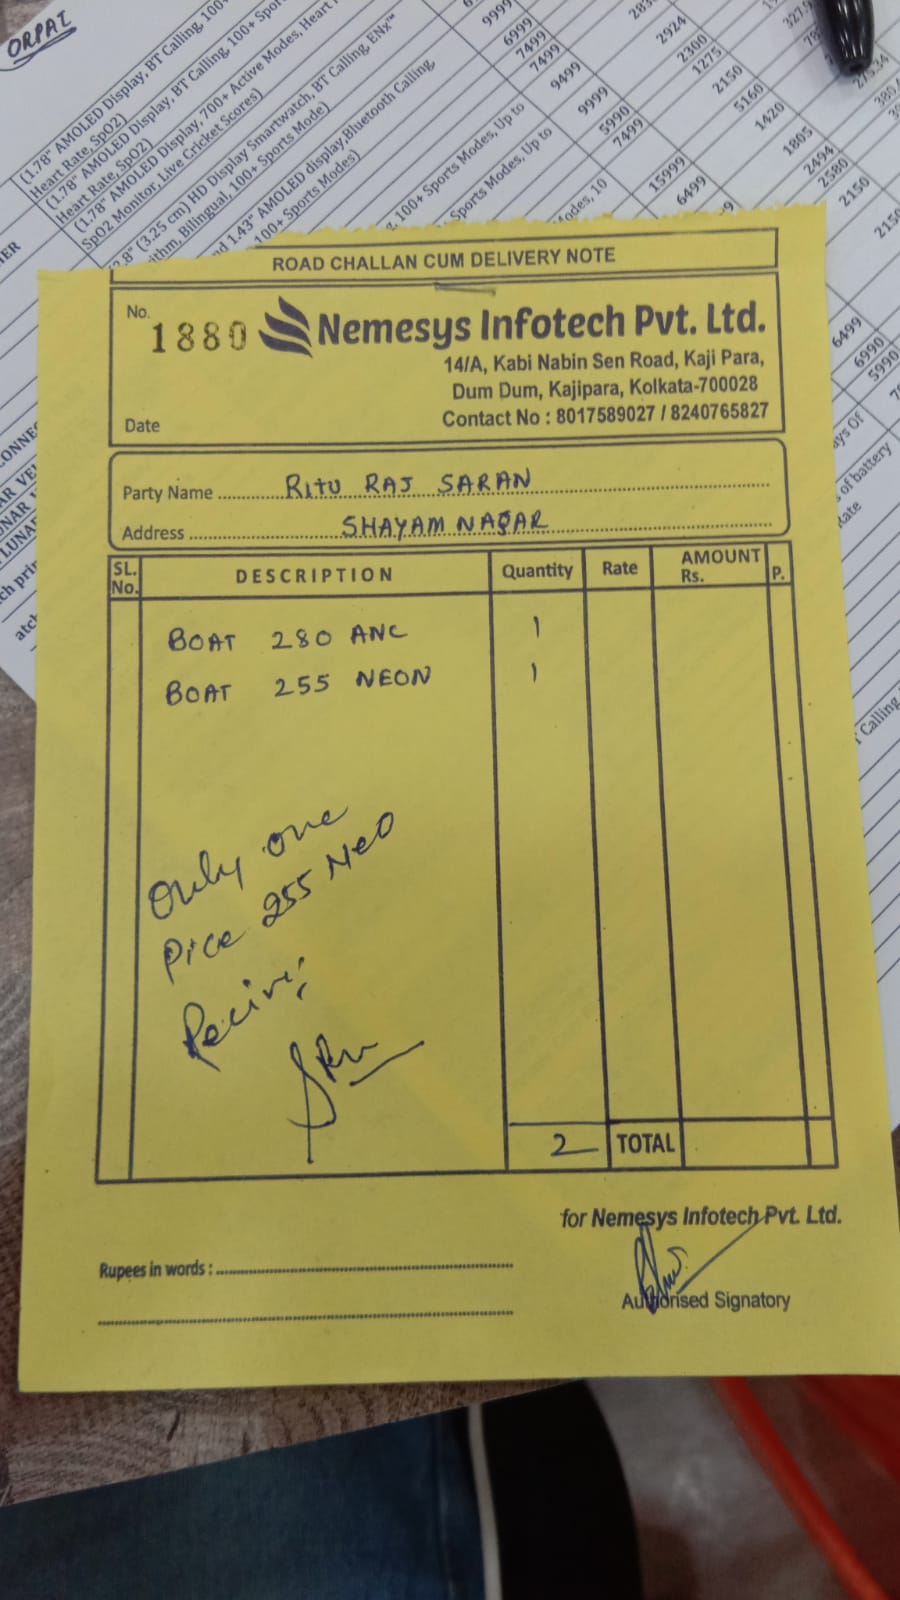 ORPAT
(1.78" AMOLED Display, BT Calling, 100+
Heart Rate, SpO2)
(1.78" AMOLED Display, BT Calling, 100+ Sport
Heart Rate, SpO2)
(1.78" AMOLED Display, 700+ Active Modes, Heart
SpO2 Monitor, Live Cricket Scores)
(3.25 cm) HD Display Smartwatch, BT Calling, ENx™
ithm, Bilingual, 100+ Sports Mode)
1.43" AMOLED display,Bluetooth Calling,
100+ Sports Modes)
100+ Sports Modes, Up to
Sports Modes, Up to
9999
6999
7499
7499
9499
9999
5990
7499
15999
6499
2924
2300
1275
2150
5160
1420
1805
2494
2580
2150
6499
6990
5990
ROAD CHALLAN CUM DELIVERY NOTE
No.
1880
Nemesys Infotech Pvt. Ltd.
14/A, Kabi Nabin Sen Road, Kaji Para,
Dum Dum, Kajipara, Kolkata-700028
Date
Contact No : 8017589027 / 8240765827
Party Name RITU RAJ SARAN
Address SHAYAM NAGAR
SL. No. DESCRIPTION Quantity Rate AMOUNT Rs. P.
BOAT 280 ANC 1
BOAT 255 NEON 1
Only one
Pice 255 Neo
Recive
2 TOTAL
for Nemesys Infotech Pvt. Ltd.
Rupees in words :
Authorised Signatory